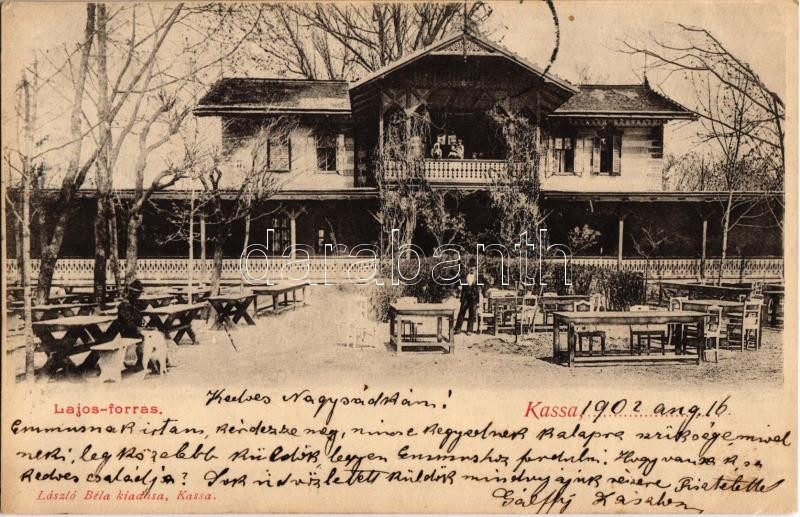 darabanth.com
Lajos-forras.
Kedves Nagysádkám!
Kassa, 1902 aug. 16.
Emmusnak irtam, kérdezze meg, nincs e kegyednek kalapra szüksége mivel
neki, legközelebb küldök legyen Emmushoz fordulni. Hogy van k.
kedves családja? Sok üdvözletet küldök mindnyájuk részére Tisztelettel
László Béla kiadása, Kassa.
Pálffy